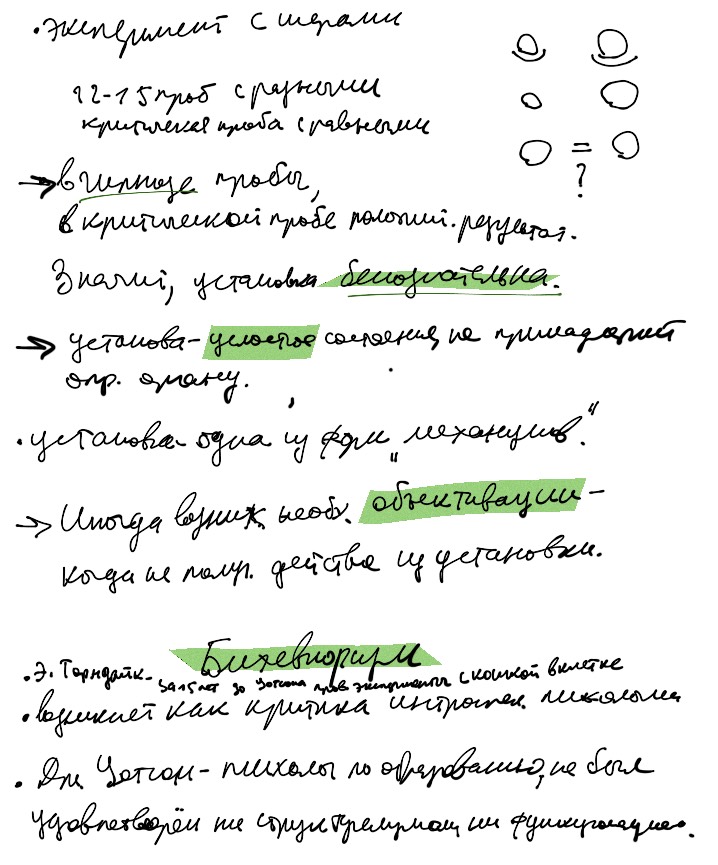 • Эксперимент с шарами
12-15 проб с разными
критическая проба с равными
=
?
→ в гипнозе пробы,
в критической пробе полож. результат.
Значит, установка бессознательна.
→ установка - целостное состояние, не принадлежит
опр. органу.
• установка - одна из форм „механизмов."
→ Иногда возник. необх. объективации -
когда не получ. действие из установки.
Бихевиоризм
• Э. Торндайк - за 15 лет до Уотсона пров. эксперименты с кошкой в клетке
• возникает как критика интроспек. психологии
• Дж. Уотсон - психолог по образованию, не был
удовлетворён ни структурализмом, ни функционализмом.